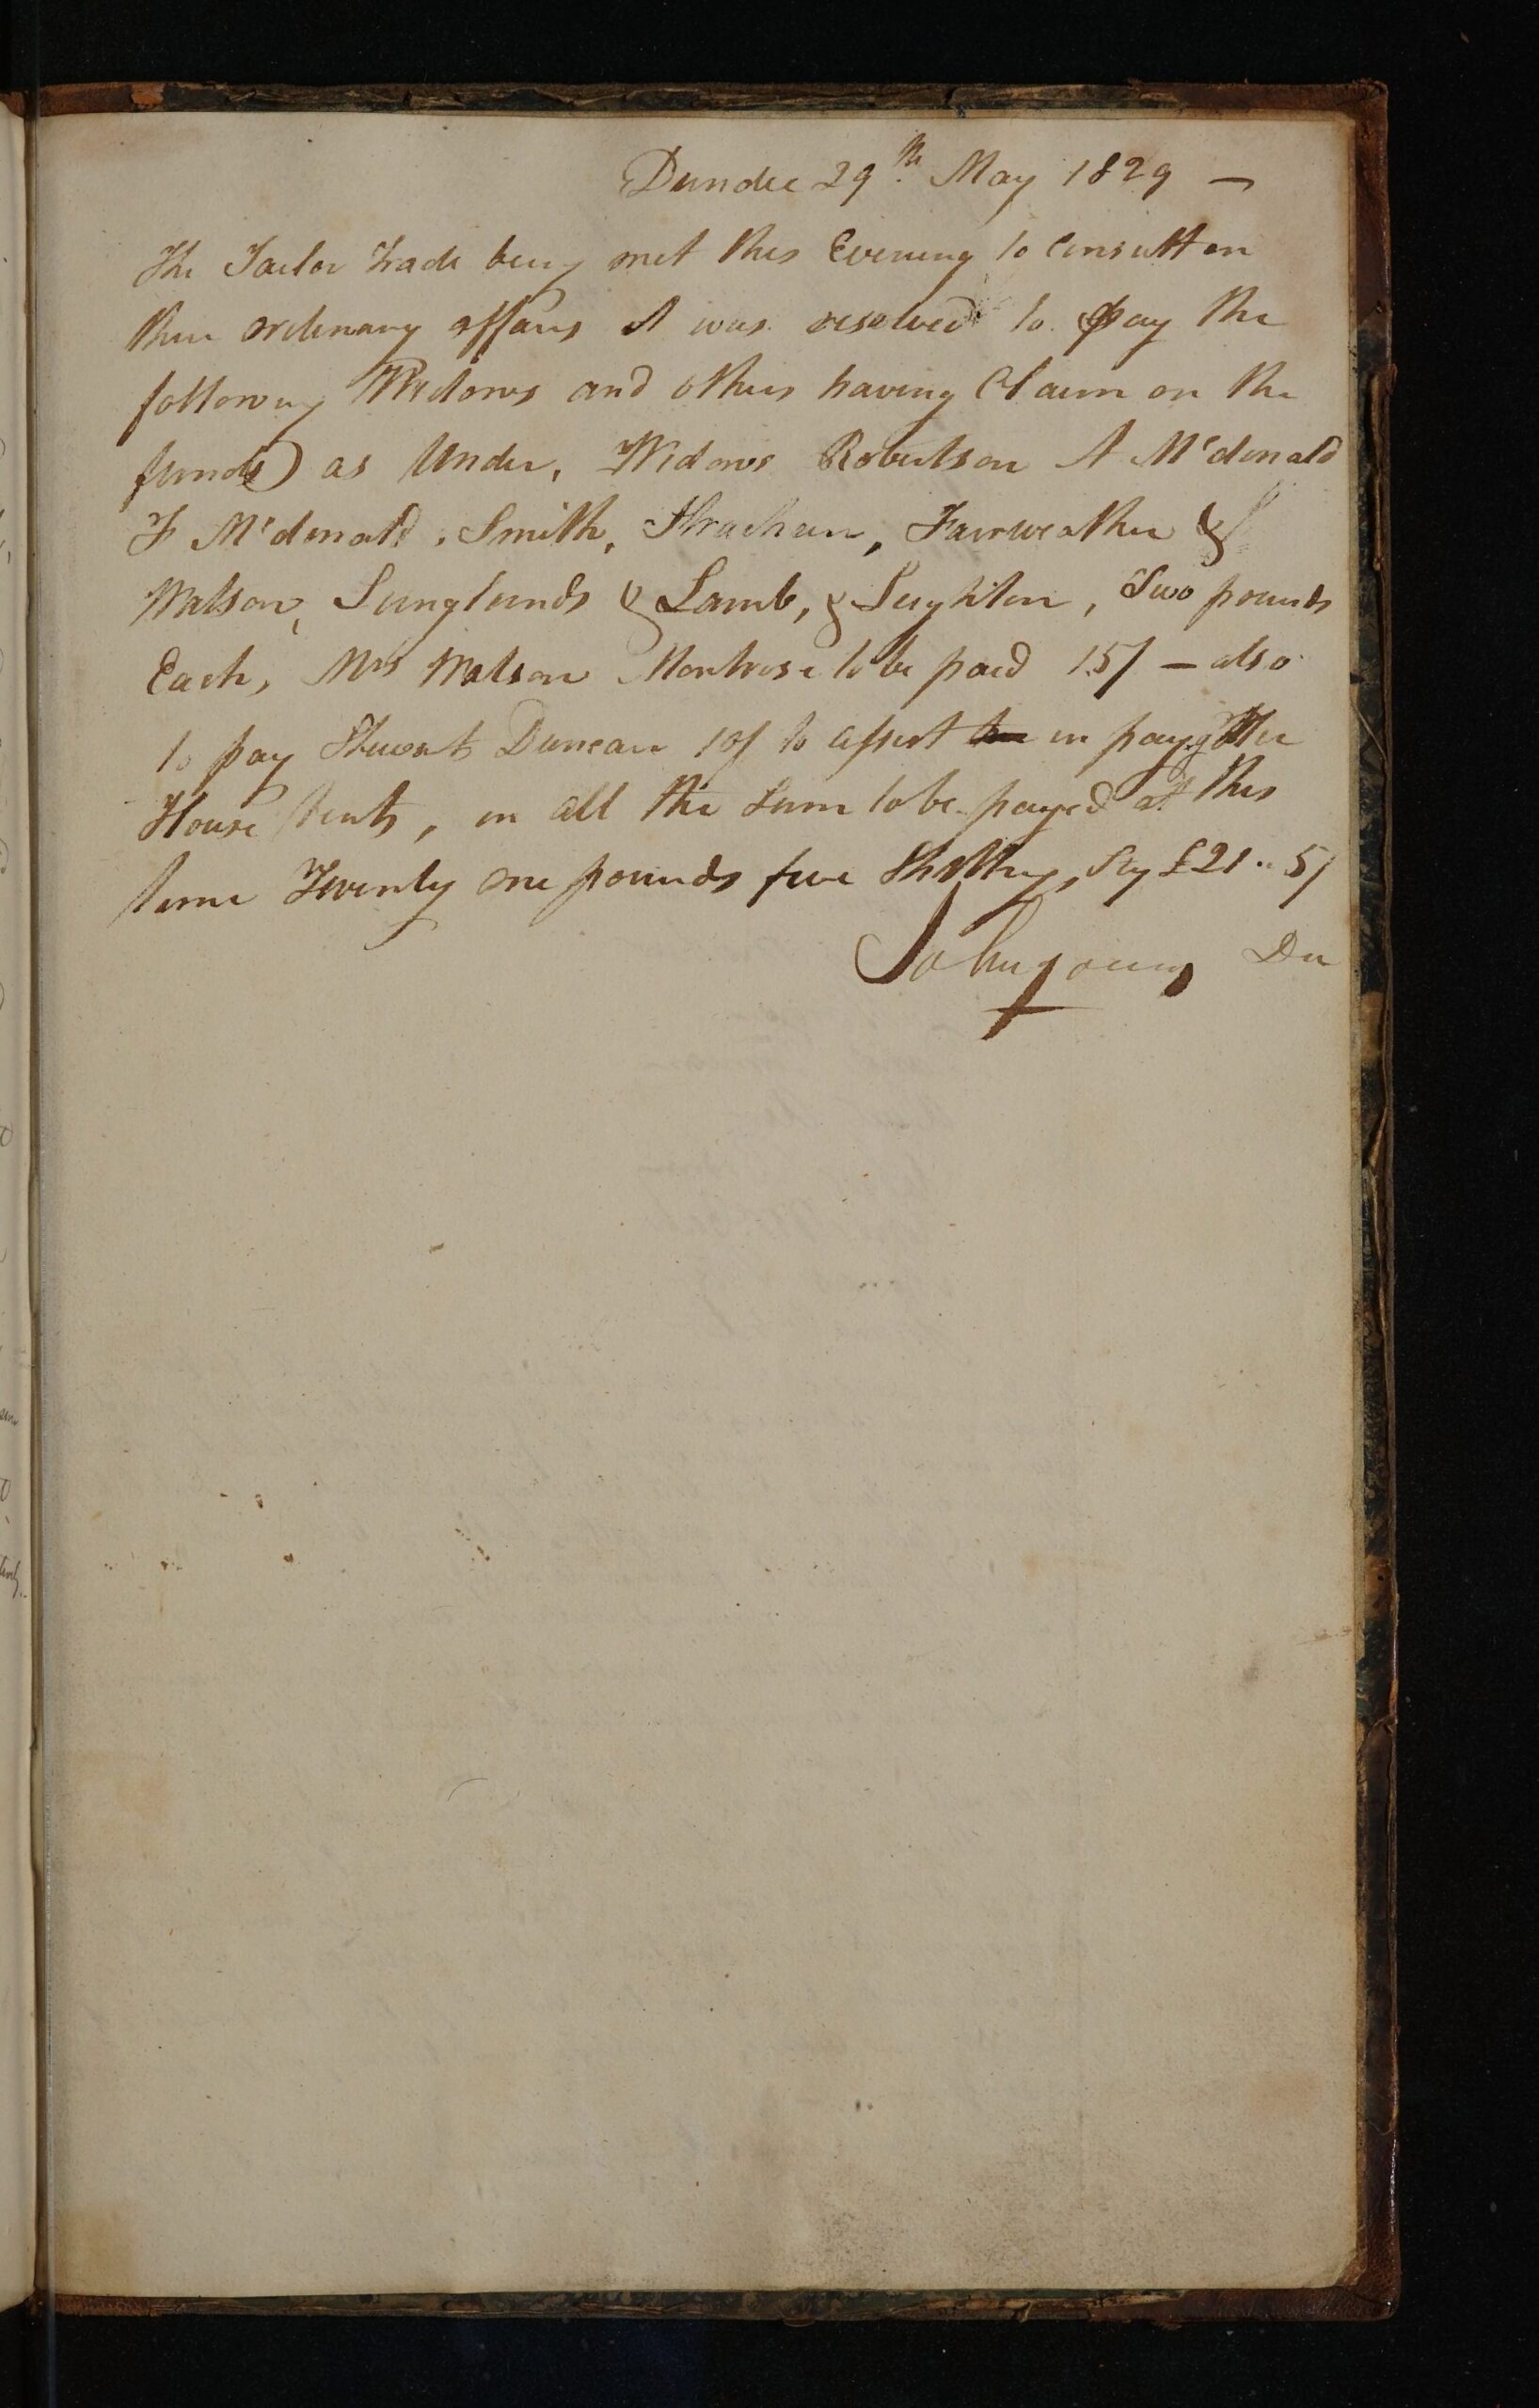 Dundee 29th May 1829 —
The Tailor Trade being met this Evening to Consult on
their ordenary affairs it was resolved to pay the
following Widows and others having Claim on the
funds as Under, Widows Robertson A Mcdonald
F Mcdonald, Smith, Strachan, Fairweather &
Watson, Lunglands & Lamb, & Leighton, Two pounds
Each, Mrs Watson Montrose to be paid 15/ – also
to pay Stewart Duncan 10/ to assist in payg their
House Rents, in all the Sum to be payed at this
term Twenty one pounds five Shillings, Stg £21 .. 5/
John Young Dn